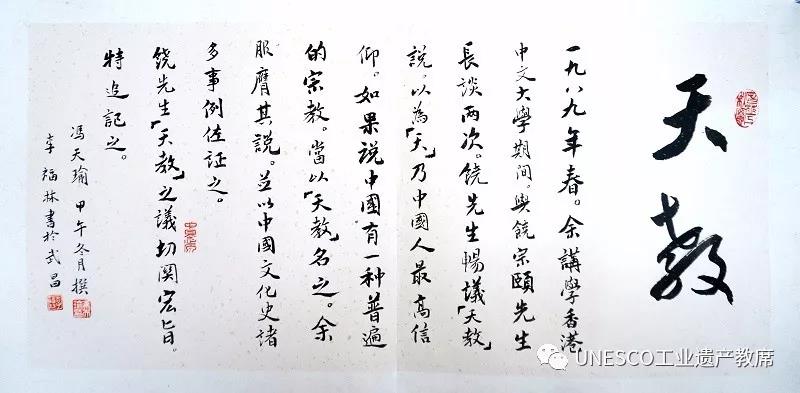 天教
一九八九年春。余講學香港
中文大學期间。與饶宗颐先生
長談两次。饶先生暢議「天教」
説。以為「天」乃中國人最高信
仰。如果说中國有一种普遍
的宗教。當以「天教」名之。余
服膺其説。並以中國文化史诸
多事例佐証之。
饶先生「天教」之議切関宏旨。
特追記之。
冯天瑜 甲午冬月撰
書於武昌
UNESCO工业遗产教席